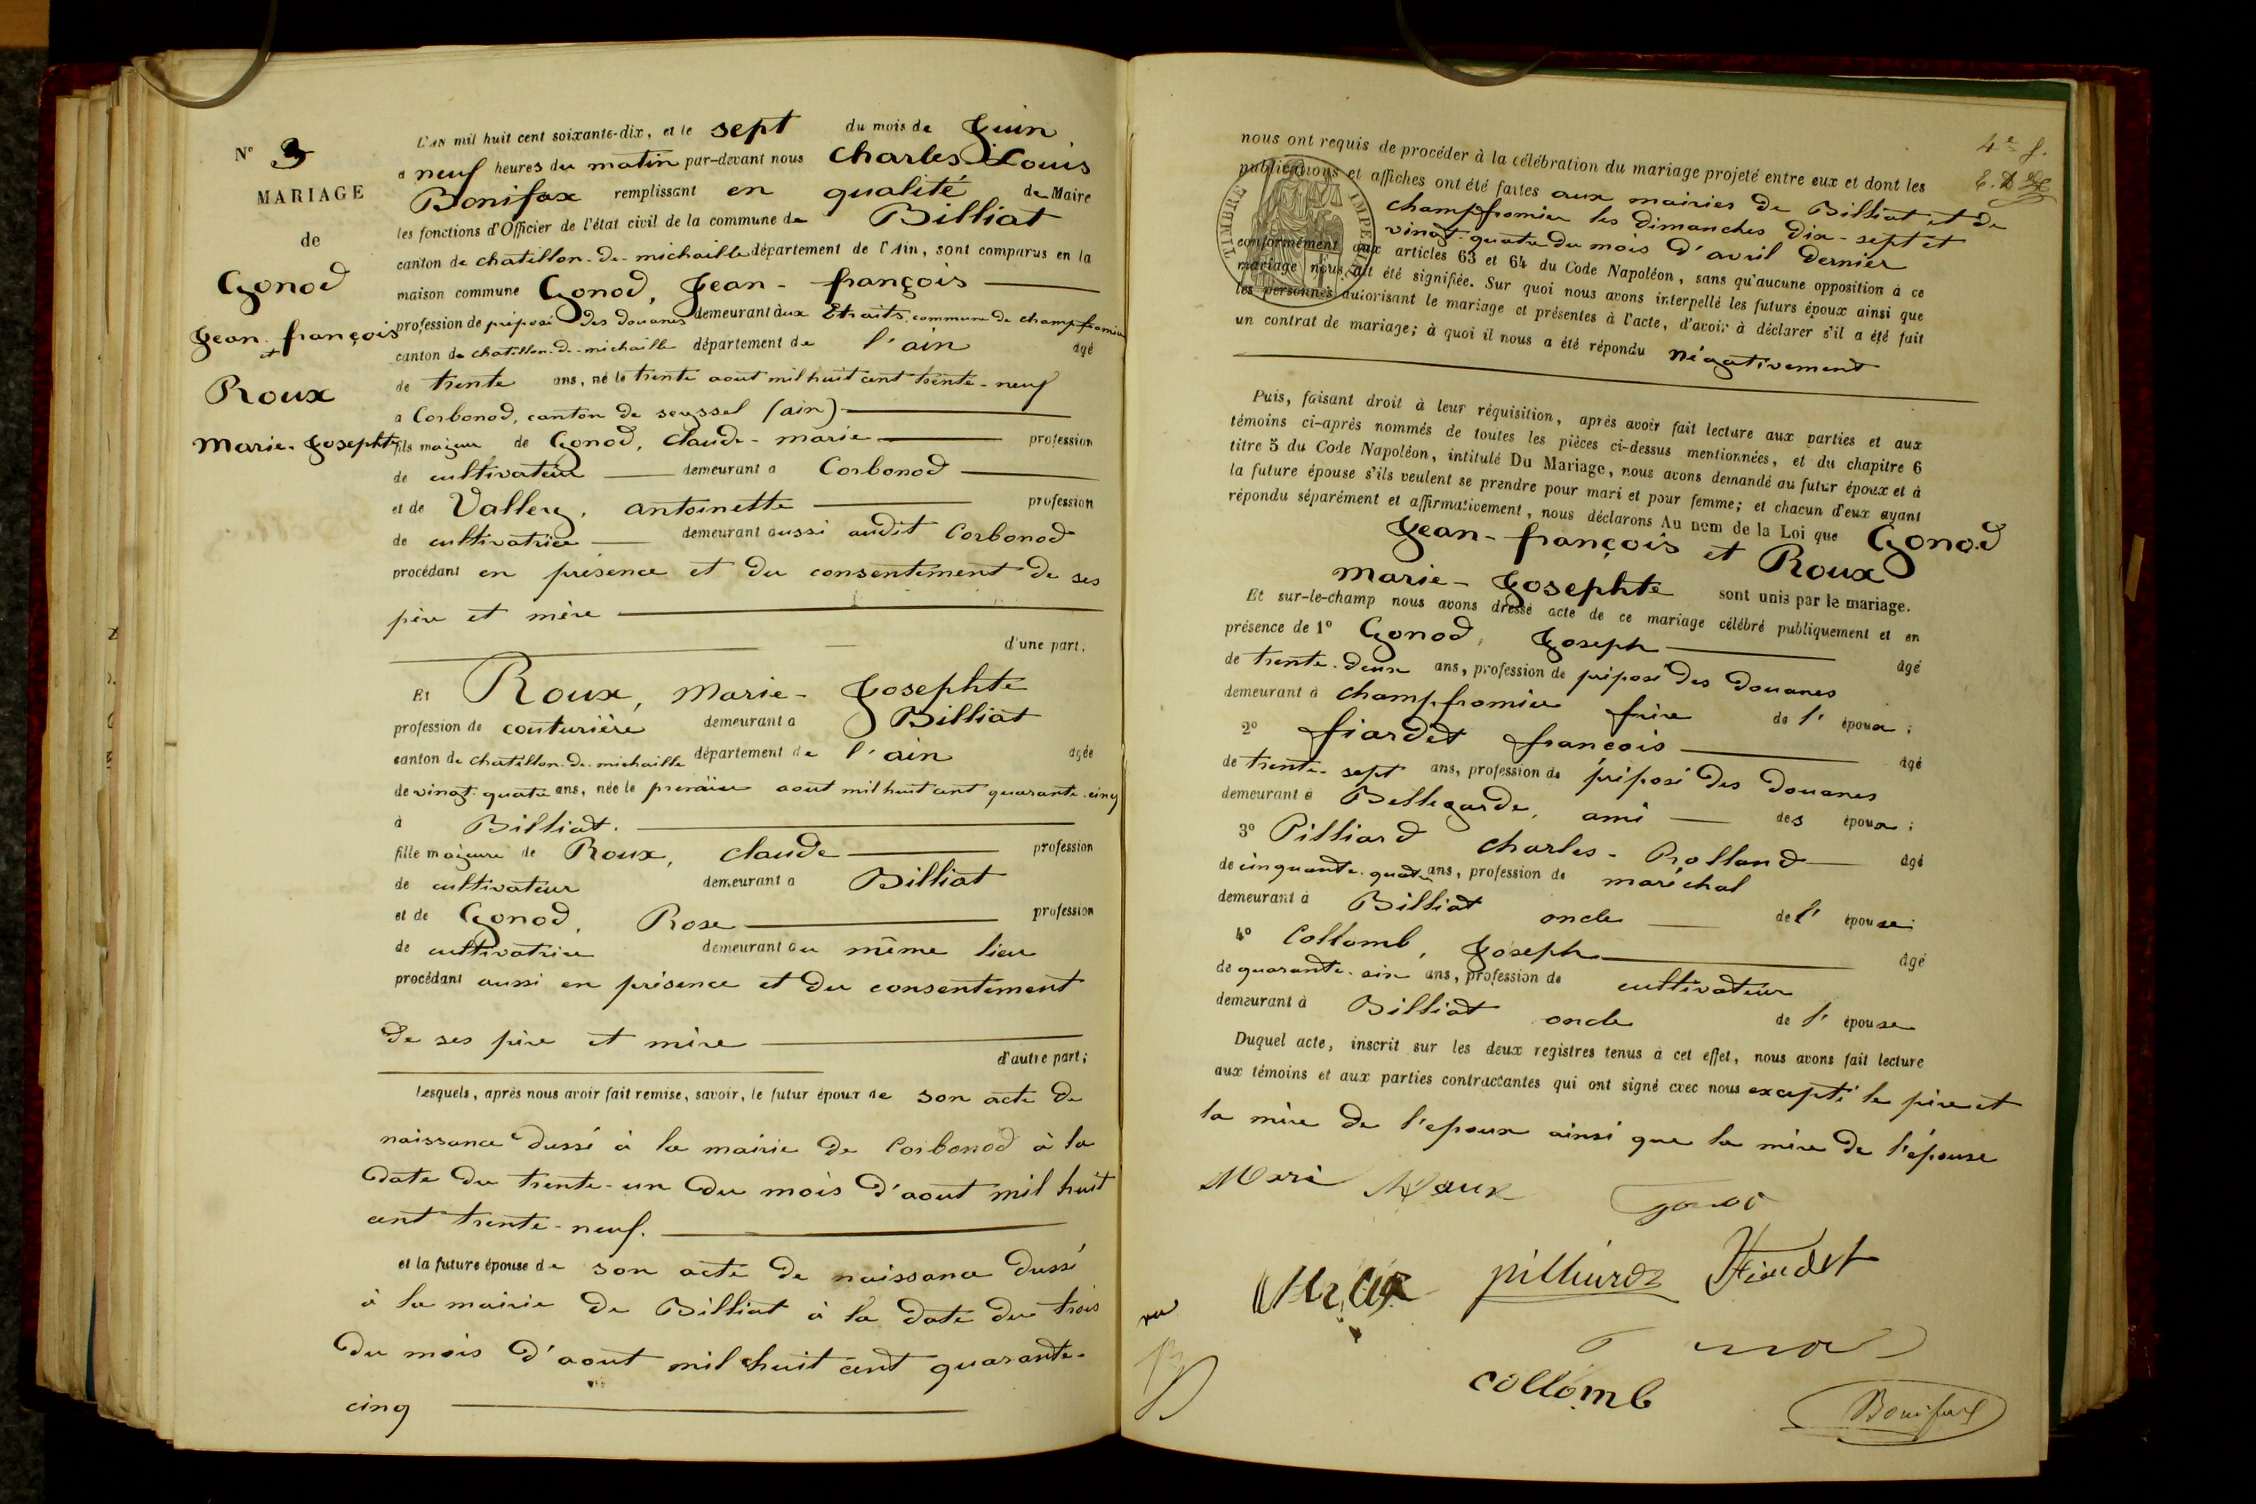 N° 3
MARIAGE
de
Gonod
Jean-françois
et
Roux
Marie-Josephte
L'AN mil huit cent soixante-dix, et le sept du mois de Juin
a neuf heures du matin par-devant nous Charles Louis
Bonifax remplissant en qualité de Maire
les fonctions d'Officier de l'état civil de la commune de Billiat
canton de chatillon-de-michaille département de l'Ain, sont comparus en la
maison commune Gonod, Jean-françois
profession de préposé des douanes demeurant aux Etraits commune de champfromier
canton de chatillon-de-michaille département de l'ain âgé
de trente ans, né le trente aout mil huit cent trente-neuf
a Corbonod, canton de seyssel (ain)
fils majeur de Gonod, claude-marie profession
de cultivateur demeurant a Corbonod
et de Vallery, antoinette profession
de cultivatrice demeurant aussi audit Corbonod
procédant en présence et du consentement de ses
père et mère
d'une part.
Et Roux, Marie-Josephte
profession de couturière demeurant a Billiat
canton de chatillon-de-michaille département de l'ain agée
de vingt-quatre ans, née le premier aout mil huit cent quarante-cinq
à Billiat.
fille majeure de Roux, claude profession
de cultivateur demeurant a Billiat
et de Gonod, Rose profession
de cultivatrice demeurant au même lieu
procédant aussi en présence et du consentement
de ses père et mère
d'autre part;
Lesquels, après nous avoir fait remise, savoir, le futur époux de son acte de
naissance dressé à la mairie de Corbonod à la
date du trente-un du mois d'aout mil huit
cent trente-neuf.
et la future épouse de son acte de naissance dressé
à la mairie de Billiat à la date du trois
du mois d'aout mil huit cent quarante-
cinq
4e f.
nous ont requis de procéder à la célébration du mariage projeté entre eux et dont les
publications et affiches ont été faites aux mairies de Billiat et de
champfromier les dimanches dix-sept et
vingt-quatre du mois d'avril dernier
TIMBRE IMPERIAL
conformément aux articles 63 et 64 du Code Napoléon, sans qu'aucune opposition à ce
mariage nous ait été signifiée. Sur quoi nous avons interpellé les futurs époux ainsi que
les personnes autorisant le mariage et présentes à l'acte, d'avoir à déclarer s'il a été fait
un contrat de mariage; à quoi il nous a été répondu négativement
Puis, faisant droit à leur réquisition, après avoir fait lecture aux parties et aux
témoins ci-après nommés de toutes les pièces ci-dessus mentionnées, et du chapitre 6
titre 5 du Code Napoléon, intitulé Du Mariage, nous avons demandé au futur époux et à
la future épouse s'ils veulent se prendre pour mari et pour femme; et chacun d'eux ayant
répondu séparément et affirmativement, nous déclarons Au nom de la Loi que Gonod
Jean-françois et Roux
Marie-Josephte sont unis par le mariage.
Et sur-le-champ nous avons dressé acte de ce mariage célébré publiquement et en
présence de 1° Gonod, Joseph âgé
de trente-deux ans, profession de préposé des douanes
demeurant à champfromier frère de l'époux;
2° fiardet françois âgé
de trente-sept ans, profession de préposé des douanes
demeurant à Bellegarde, ami des époux;
3° Pilliard Charles-Rolland âgé
de cinquante-quatre ans, profession de maréchal
demeurant à Billiat oncle de l'épouse;
4° Collomb, Joseph âgé
de quarante-six ans, profession de cultivateur
demeurant à Billiat oncle de l'épouse
Duquel acte, inscrit sur les deux registres tenus à cet effet, nous avons fait lecture
aux témoins et aux parties contractantes qui ont signé avec nous excepté le père et
la mère de l'epoux ainsi que la mère de l'épouse
Mari Roux Gonod
pilliard Fiardet
vu
collomb
Bonifax